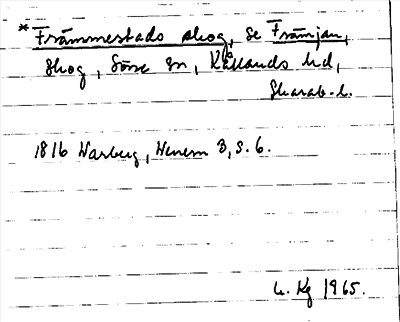 *Främmestads skog, se Främjan,
skog, Söne sn, Kållands hd,
Skarab. l.
1816 Warberg, Wenern 3, s. 6.
4. Kg 1965.